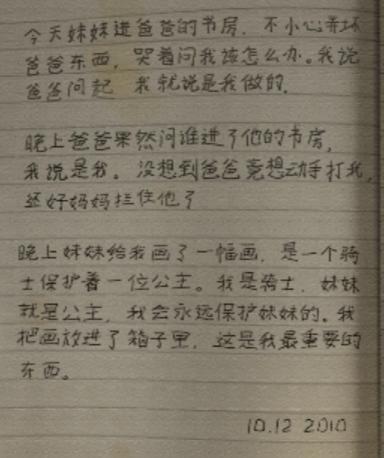 今天妹妹进爸爸的书房，不小心弄坏
爸爸东西，哭着问我该怎么办。我说
爸爸问起 我就说是我做的.
晚上爸爸果然问谁进了他的书房，
我说是我。没想到爸爸竟想动手打我，
还好妈妈拦住他了
晚上妹妹给我画了一幅画，是一个骑
士保护着一位公主。我是骑士，妹妹
就是公主，我会永远保护妹妹的。我
把画放进了箱子里，这是我最重要的
东西。
10.12 2010